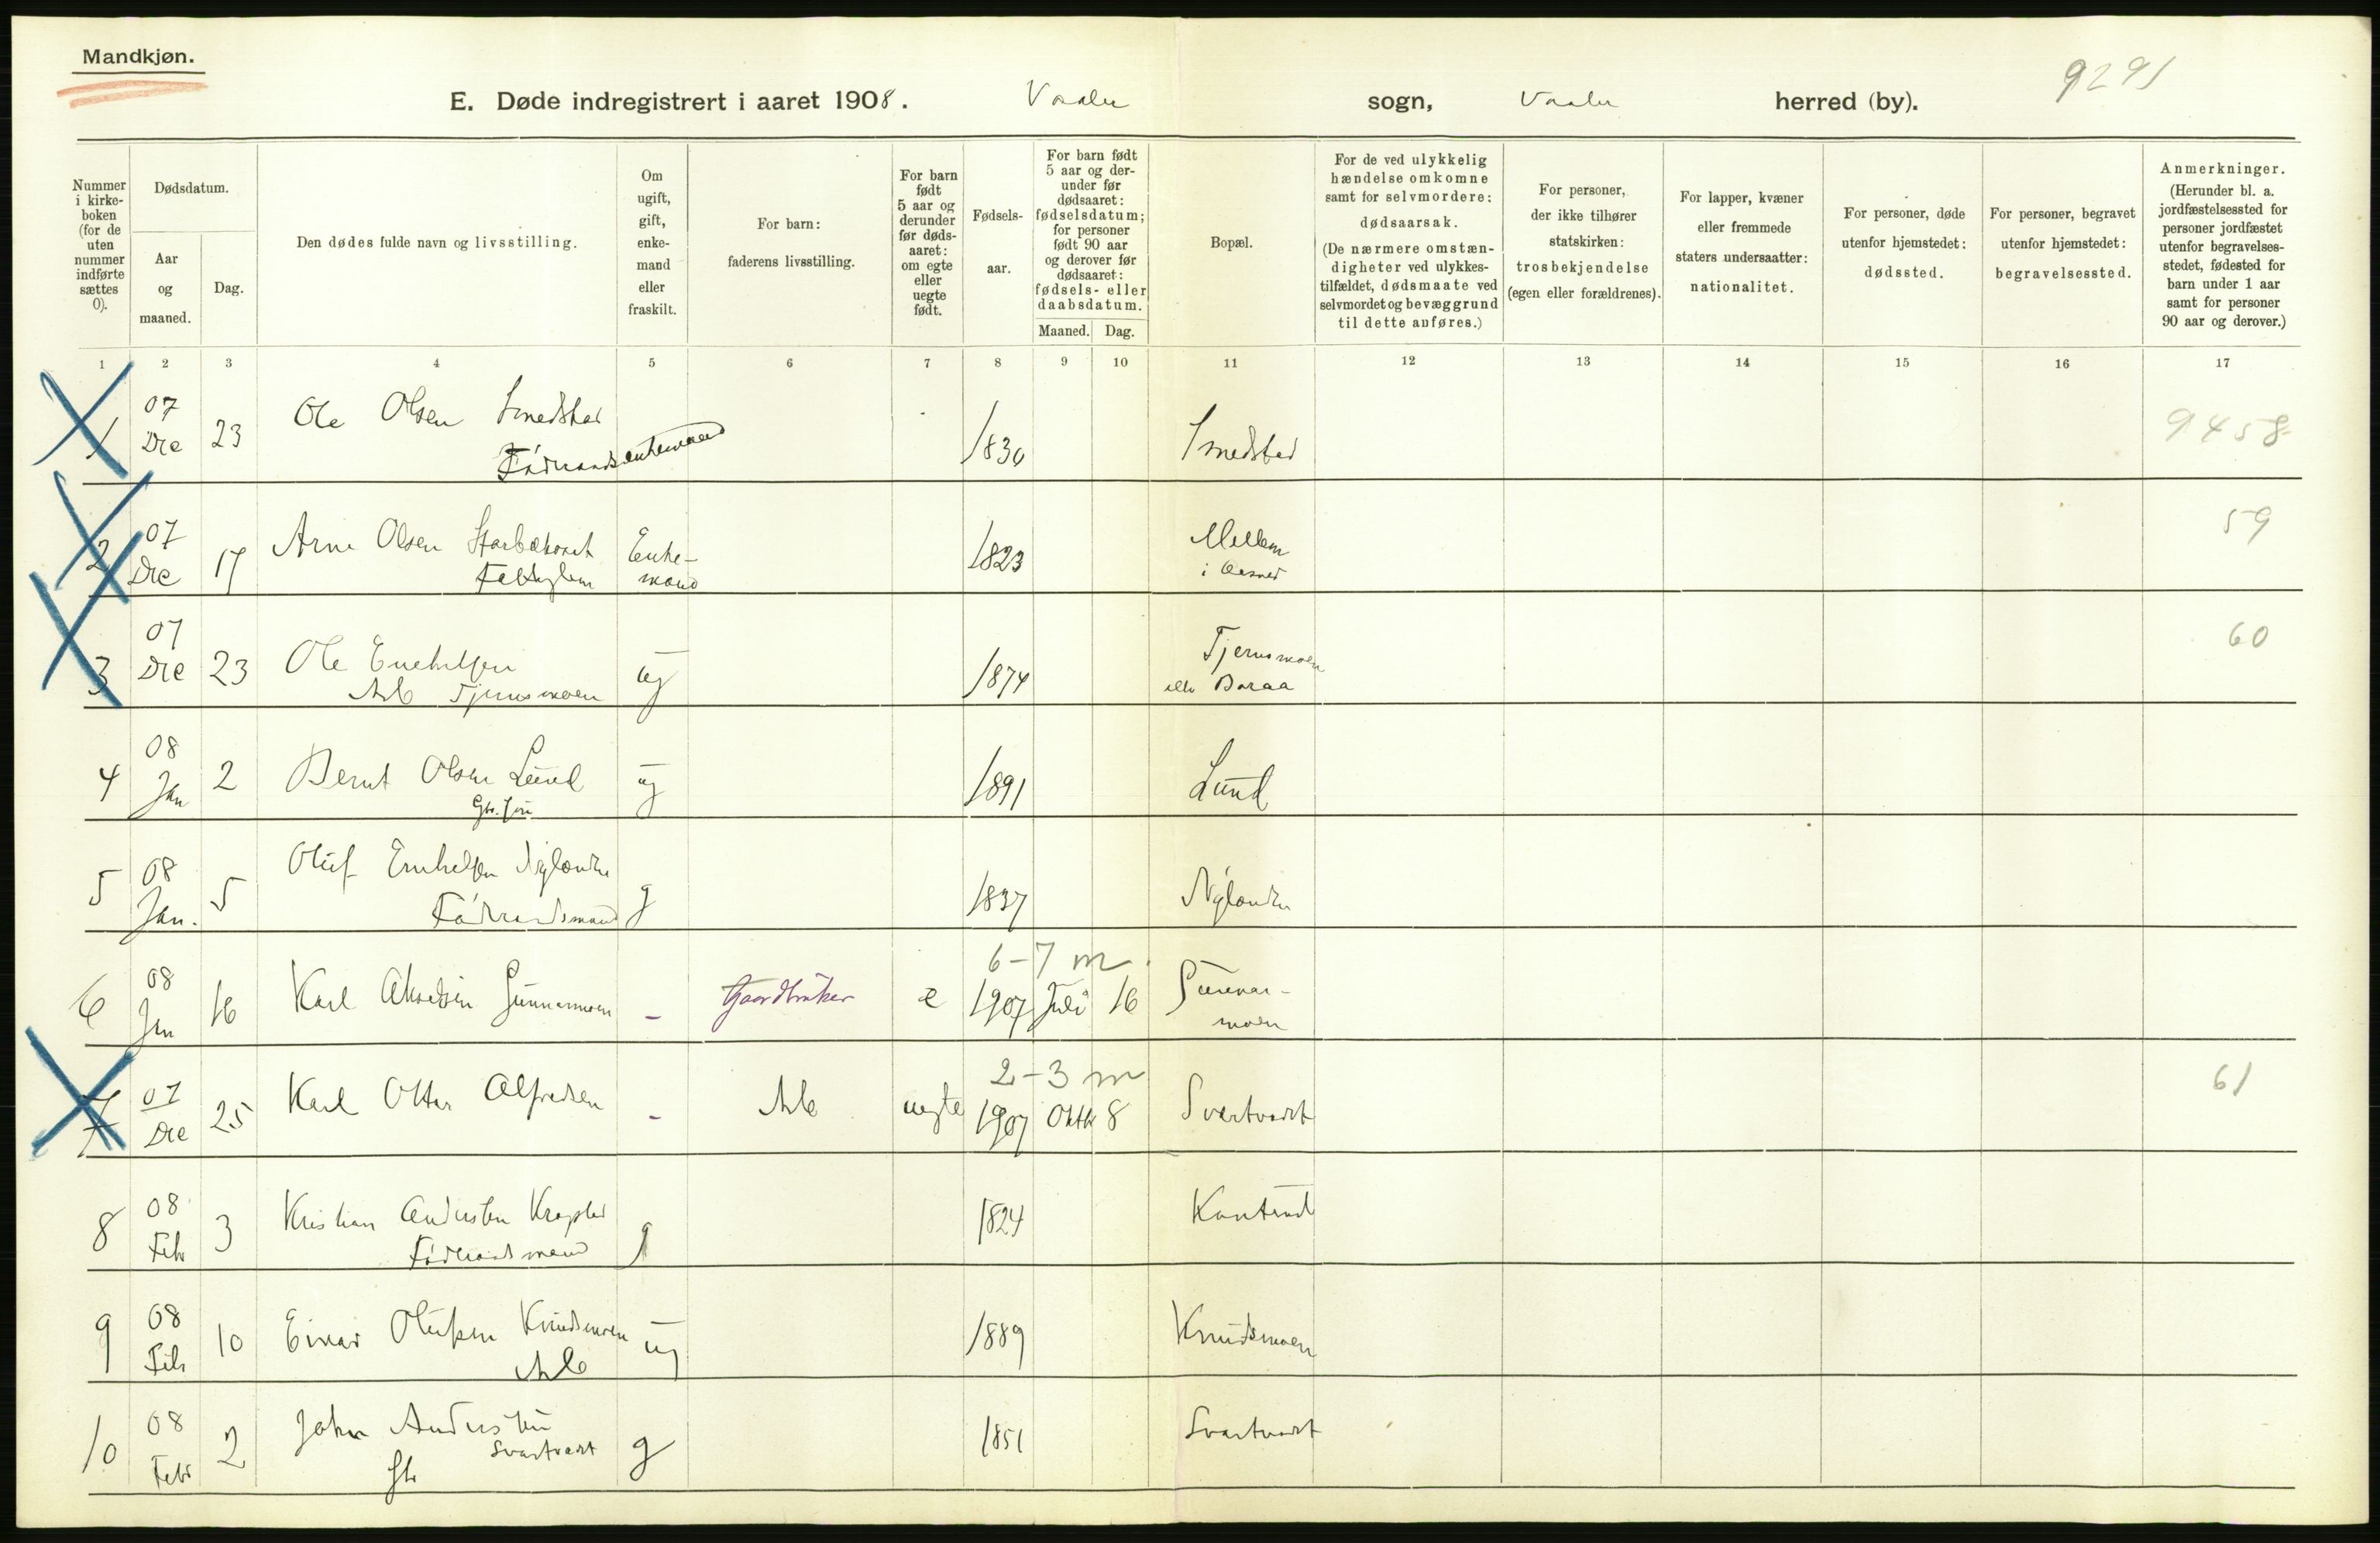 Mandkjøn.
E. Døde indregistrert i aaret 1908. Vaaler sogn, Vaaler herred (by). 9291
Nummer i kirkeboken (for de uten nummer indførte sættes 0).
Dødsdatum.
Aar og maaned.
Dag.
Den dødes fulde navn og livsstilling.
Om ugift, gift, enkemand eller fraskilt.
For barn: faderens livsstilling.
For barn født 5 aar og derunder før dødsaaret: om egte eller uegte født.
Fødselsaar.
For barn født 5 aar og derunder før dødsaaret: fødselsdatum; for personer født 90 aar og derover før dødsaaret: fødsels- eller daabsdatum.
Maaned. Dag.
Bopæl.
For de ved ulykkelig hændelse omkomne samt for selvmordere: dødsaarsak. (De nærmere omstændigheter ved ulykkestilfældet, dødsmaate ved selvmordet og bevæggrund til dette anføres.)
For personer, der ikke tilhører statskirken: trosbekjendelse (egen eller forældrenes).
For lapper, kvæner eller fremmede staters undersaatter: nationalitet.
For personer, døde utenfor hjemstedet: dødssted.
For personer, begravet utenfor hjemstedet: begravelsessted.
Anmerkninger. (Herunder bl. a. jordfæstelsessted for personer jordfæstet utenfor begravelsesstedet, fødested for barn under 1 aar samt for personer 90 aar og derover.)
1 2 3 4 5 6 7 8 9 10 11 12 13 14 15 16 17
1 07 Dec 23 Ole Olsen Smedstad Føderaadsenkemand 1830 Smedstad 9458
2 07 Dec 17 Arne Olsen Enkemand 1823 Mellem i 59
3 07 Dec 23 Ole Enebilsen Arb Tjernsmoen ug 1874 Tjernsmoen eller 60
4 08 Jan 2 Bernt Olsen Lund ug 1891 Lund
5 08 Jan. 5 Oluf Nylænder Føderaadsmand g 1837 Nylænder
6-7 m
6 08 Jan 16 Karl Akselsen Gunnarmoen - Gaardbruker e 1907 Juli 16 Gunnarmoen
2-3 m
7 07 Dec 25 Karl Otter Alfredsen - Arb uegte 1907 Oktb 8 Svartvadet 61
8 08 Feb 3 Kristian Andersen Føderaadsmand g 1824
9 08 Feb 10 Einar Olufsen Knudsmoen Arb ug 1889 Knudsmoen
10 08 Feb 2 John Andersen Svartvadet g 1851 Svartvadet